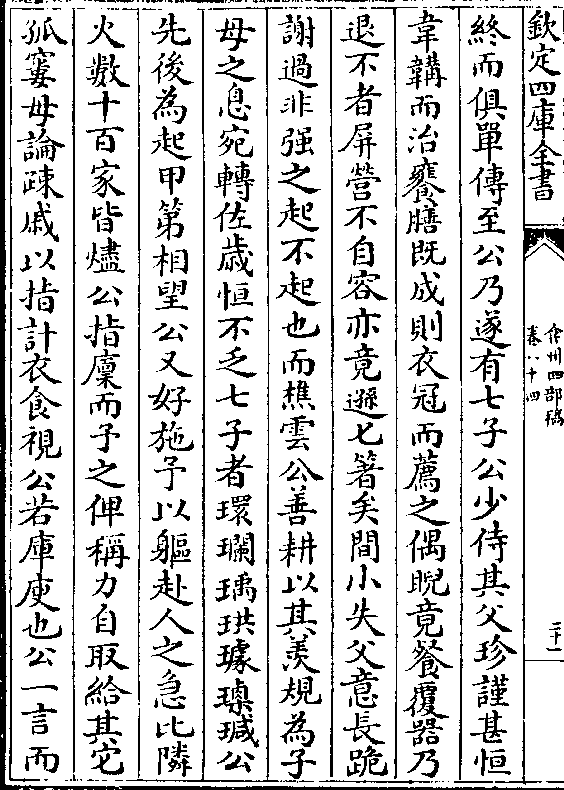 欽定四庫全書
弇州四部稿
卷八十四
二十一
終而俱單傳至公乃遂有七子公少侍其父珍謹甚恒
韋韝而治饔膳既成則衣冠而薦之偶睨竟餐覆器乃
退不者屏營不自容亦竟遜匕箸矣間小失父意長跪
謝過非强之起不起也而樵雲公善耕以其羨規為子
母之息宛轉佐歲恒不乏七子者環瓓瑀珙璩璪瑊公
先後為起甲第相望公又好施予以軀赴人之急比隣
火數十百家皆燼公指廩而予之俾稱力自取給其它
孤寠毋論疎戚以指計衣食視公若庫庾也公一言而